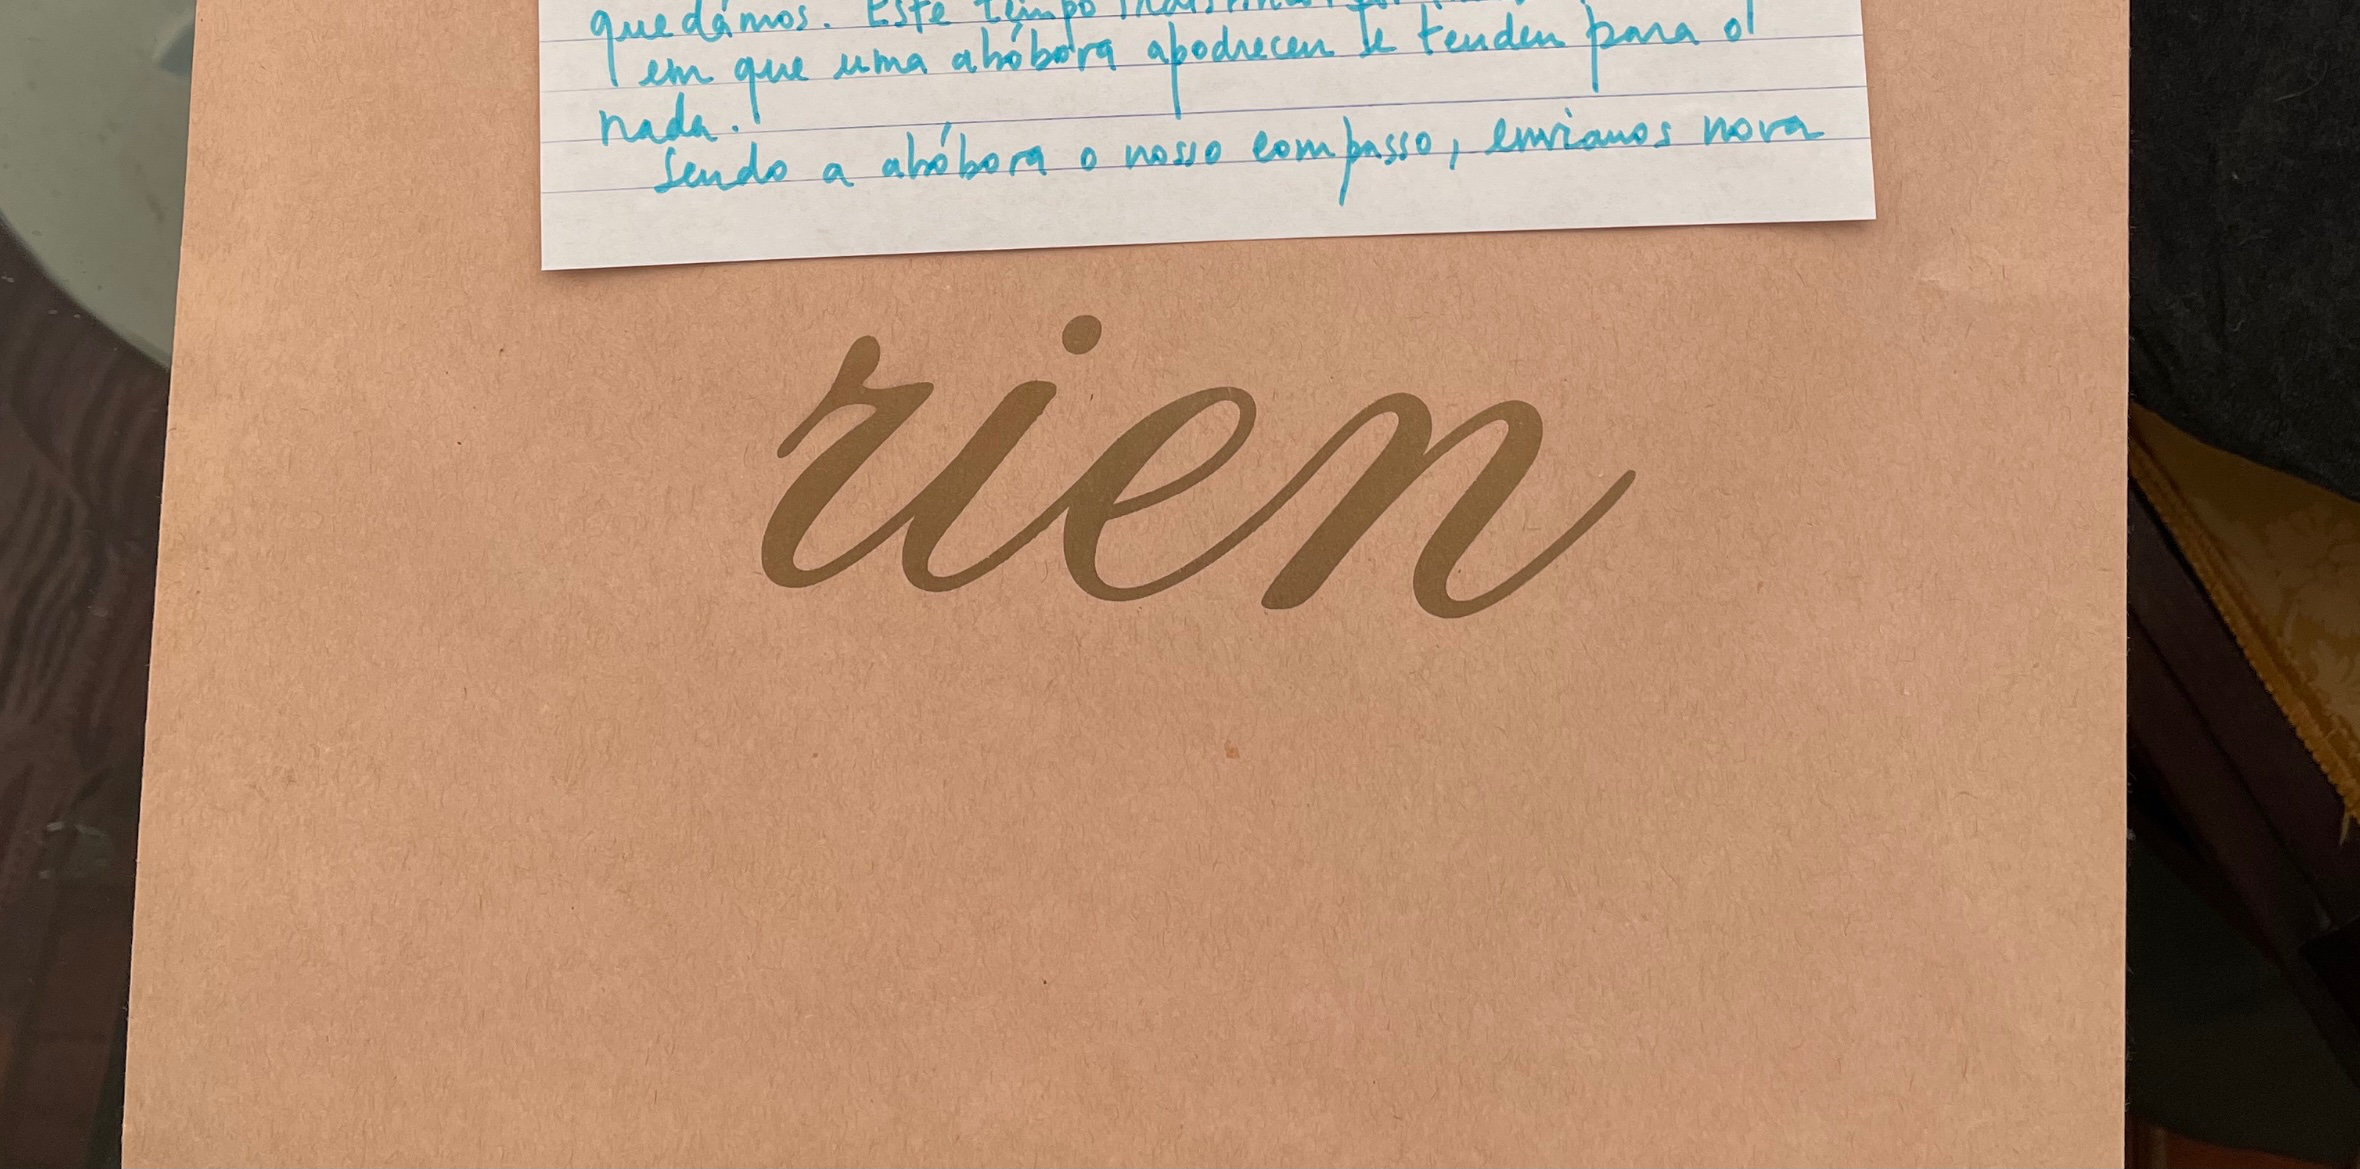 quedámos. Este tempo
em que uma abóbora apodreceu e tendeu para o
nada.
Sendo a abóbora o nosso compasso, enviamos nova
rien